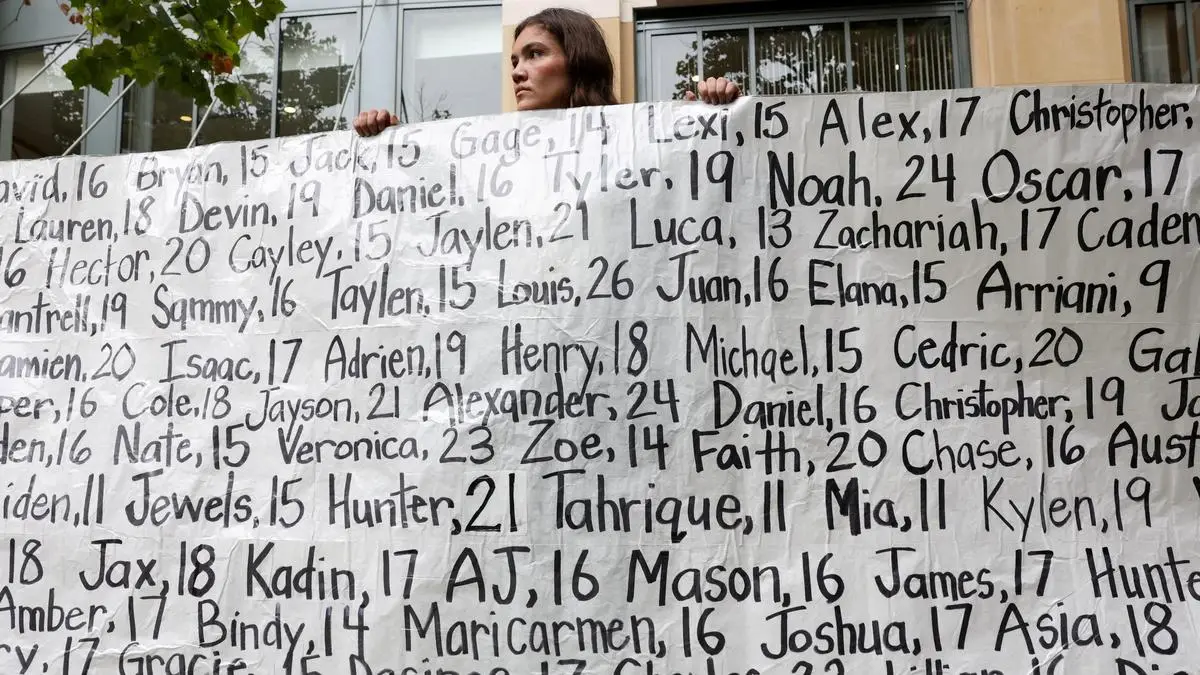 avid, 16 Bryan, 15 Jack, 15 Gage, 14 Lexi, 15 Alex, 17 Christopher,
Lauren, 18 Devin, 19 Daniel, 16 Tyler, 19 Noah, 24 Oscar, 17
16 Hector, 20 Cayley, 15 Jaylen, 21 Luca, 13 Zachariah, 17 Caden
antrell, 19 Sammy, 16 Taylen, 15 Louis, 26 Juan, 16 Elana, 15 Arriani, 9
amien, 20 Isaac, 17 Adrien, 19 Henry, 18 Michael, 15 Cedric, 20 Gal
per, 16 Cole, 18 Jayson, 21 Alexander, 24 Daniel, 16 Christopher, 19 Ja
den, 16 Nate, 15 Veronica, 23 Zoe, 14 Faith, 20 Chase, 16 Aust
iden, 11 Jewels, 15 Hunter, 21 Tahrique, 11 Mia, 11 Kylen, 19
18 Jax, 18 Kadin, 17 AJ, 16 Mason, 16 James, 17 Hunte
Amber, 17 Bindy, 14 Maricarmen, 16 Joshua, 17 Asia, 18
ry, 17 Gracie